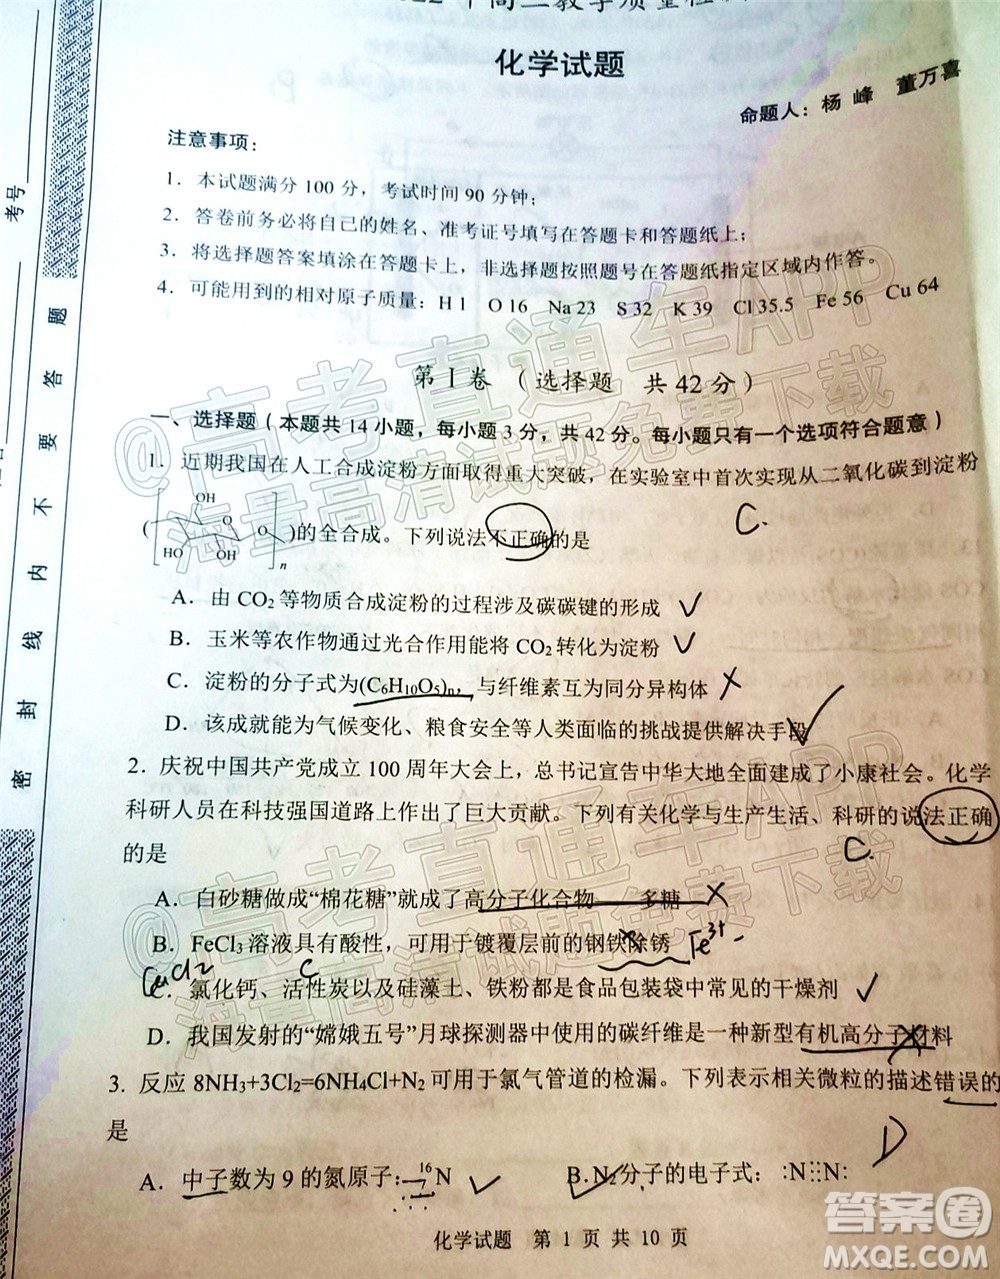 化学试题
命题人：杨 峰 董万喜
注意事项：
1．本试题满分 100 分，考试时间 90 分钟；
2．答卷前务必将自己的姓名、准考证号填写在答题卡和答题纸上；
3．将选择题答案填涂在答题卡上，非选择题按照题号在答题纸指定区域内作答。
4．可能用到的相对原子质量：H 1 O 16 Na 23 S 32 K 39 Cl 35.5 Fe 56 Cu 64
第 I 卷 （选择题 共 42 分）
一、选择题（本题共 14 小题，每小题 3 分，共 42 分。每小题只有一个选项符合题意）
1．近期我国在人工合成淀粉方面取得重大突破，在实验室中首次实现从二氧化碳到淀粉
( OH O O HO OH n )的全合成。下列说法不正确的是
C.
A．由 CO2 等物质合成淀粉的过程涉及碳碳键的形成
B．玉米等农作物通过光合作用能将 CO2 转化为淀粉
C．淀粉的分子式为(C6H10O5)n，与纤维素互为同分异构体
D．该成就能为气候变化、粮食安全等人类面临的挑战提供解决手段
2．庆祝中国共产党成立 100 周年大会上，总书记宣告中华大地全面建成了小康社会。化学
科研人员在科技强国道路上作出了巨大贡献。下列有关化学与生产生活、科研的说法正确
的是
C.
A．白砂糖做成“棉花糖”就成了高分子化合物——多糖
B．FeCl3 溶液具有酸性，可用于镀覆层前的钢铁除锈
Fe3+
CaCl2 C
C．氯化钙、活性炭以及硅藻土、铁粉都是食品包装袋中常见的干燥剂
D．我国发射的“嫦娥五号”月球探测器中使用的碳纤维是一种新型有机高分子材料
3．反应 8NH3+3Cl2=6NH4Cl+N2 可用于氯气管道的检漏。下列表示相关微粒的描述错误的
是
D
A．中子数为 9 的氮原子：16 7 N B．N2 分子的电子式：:N⋮⋮N:
化学试题 第 1 页 共 10 页
考号
密 封 线 内 不 要 答 题
@高考直通车APP
海量高清试题免费下载
@高考直通车APP
海量高清试题免费下载
答案圈
MXQE.COM